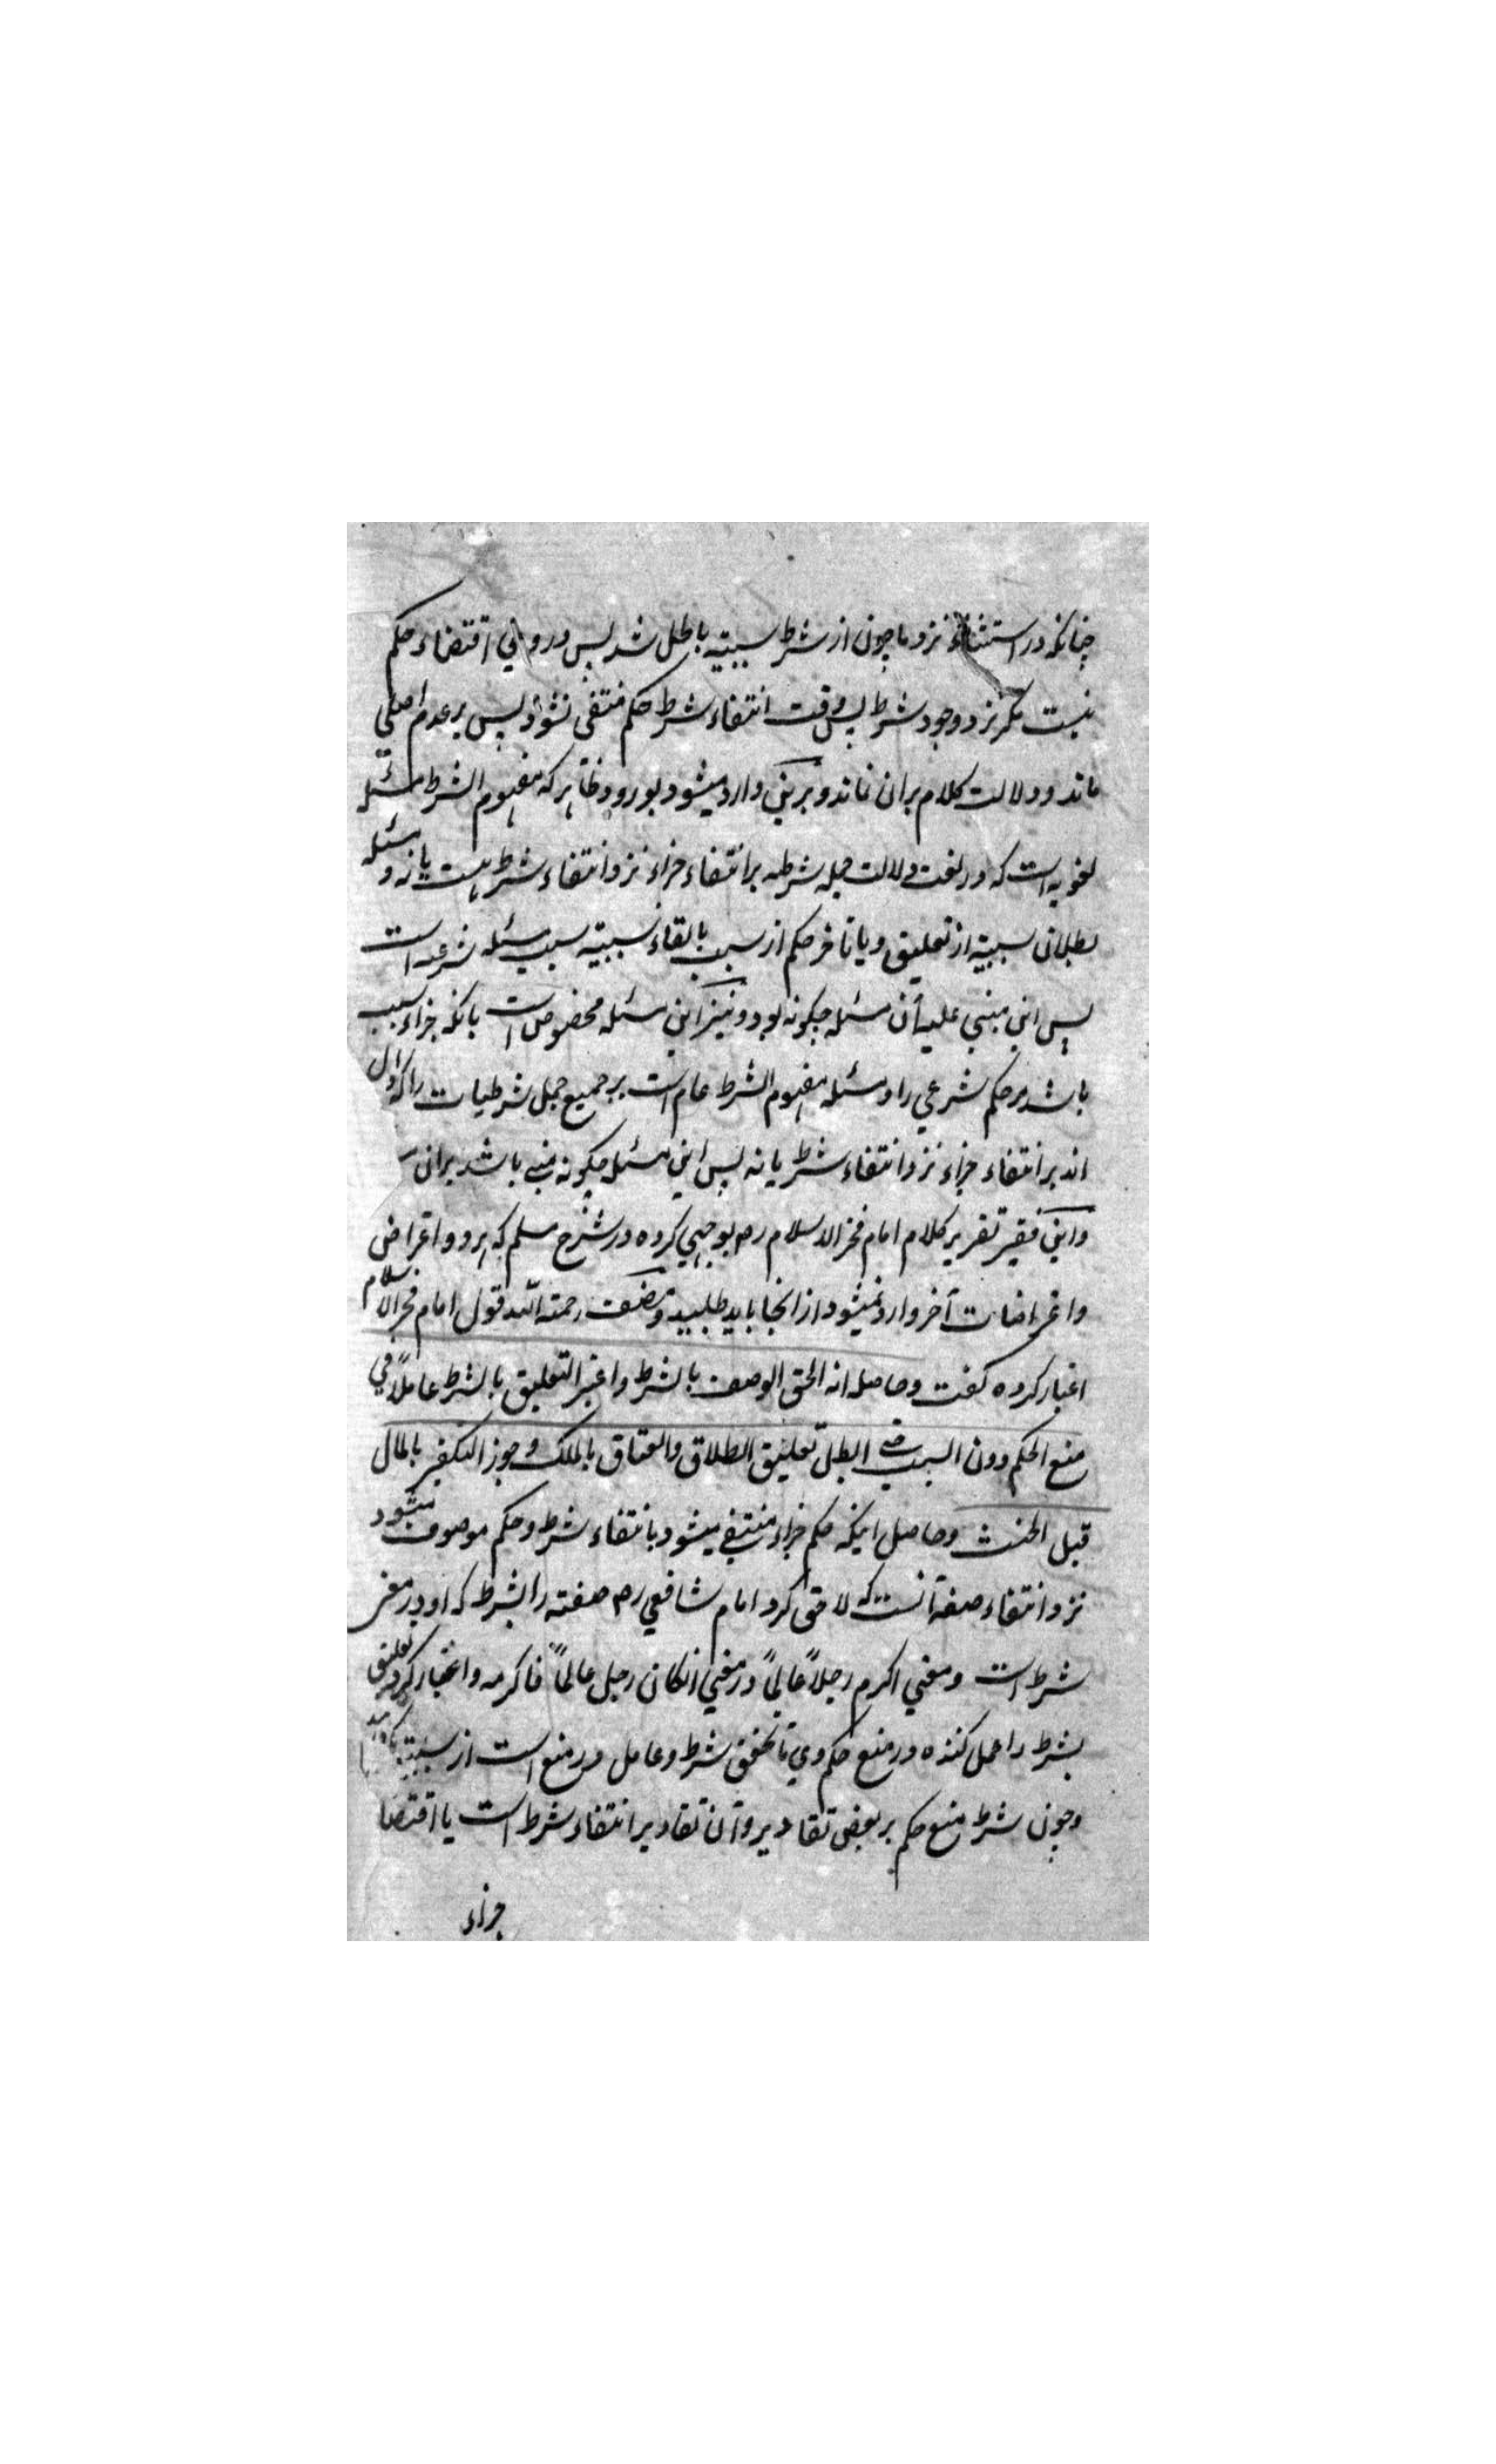 چنانکه در استثناء نزد ما چون از شرط سببیته باطل شد پس در وی اقتضاء حکم
نیست مگر نزد وجود شرط پس وقت انتفاء شرط حکم منتفی نشود پس بر عدم اصلی
ماند و دلالت کلام بران نماند و برین وارد میشود بورود ظاهر که مفهوم الشرط مسئله
لغویه است که در لغت دلالت جمله شرطیه بر انتفاء جزاء نزد انتفاء شرط هست یا نه و مسئله
بطلان سببیه از تعلیق و یا تاخر حکم از سبب بابقاء سببیته سبب مسئله شرعیه است
پس این مبنی علیه آن مسئله چگونه بود و نیز این مسئله مخصوص است بانکه جزاء سبب
باشد مر حکم شرعی را و مسئله مفهوم الشرط عام است بر جمیع جمل شرطیات را که دال
اند بر انتفاء جزاء نزد انتفاء شرط یا نه پس این مسئله چگونه مبنی باشد بران
و این فقیر تقریر کلام امام فخر الاسلام رح بوجهی کرده در شرح مسلم که هر دو اعتراض
و اعتراضات آخر وارد نمیشود از انجا باید طلبید و مصنف رحمة الله قول امام فخر الاسلام
اعتبار کرده گفت و حاصله انه الحق الوصف بالشرط و اعتبر التعلیق بالشرط عاملاً فی
منع الحکم دون السبب حتی ابطل تعلیق الطلاق والعتاق بالملک و جوز التکفیر بالمال
قبل الحنث و حاصل اینکه حکم جزاء منتفی میشود بانتفاء شرط و حکم موصوف میشود
نزد انتفاء صفة آنست که لاحق کرد امام شافعی رح صفته را بشرط که او در معنی
شرط است و معنی اکرم رجلاً عالماً در معنی انکان رجل عالماً فاکرمه و اعتبار کرد تعلیق
بشرط را عمل کننده در منع حکم وی تا تحقق شرط و عامل در منع است از سببیته
و چون شرط منع حکم بر بعض تقادیر و آن تقادیر انتفاء شرط است یا اقتضا
جزاء